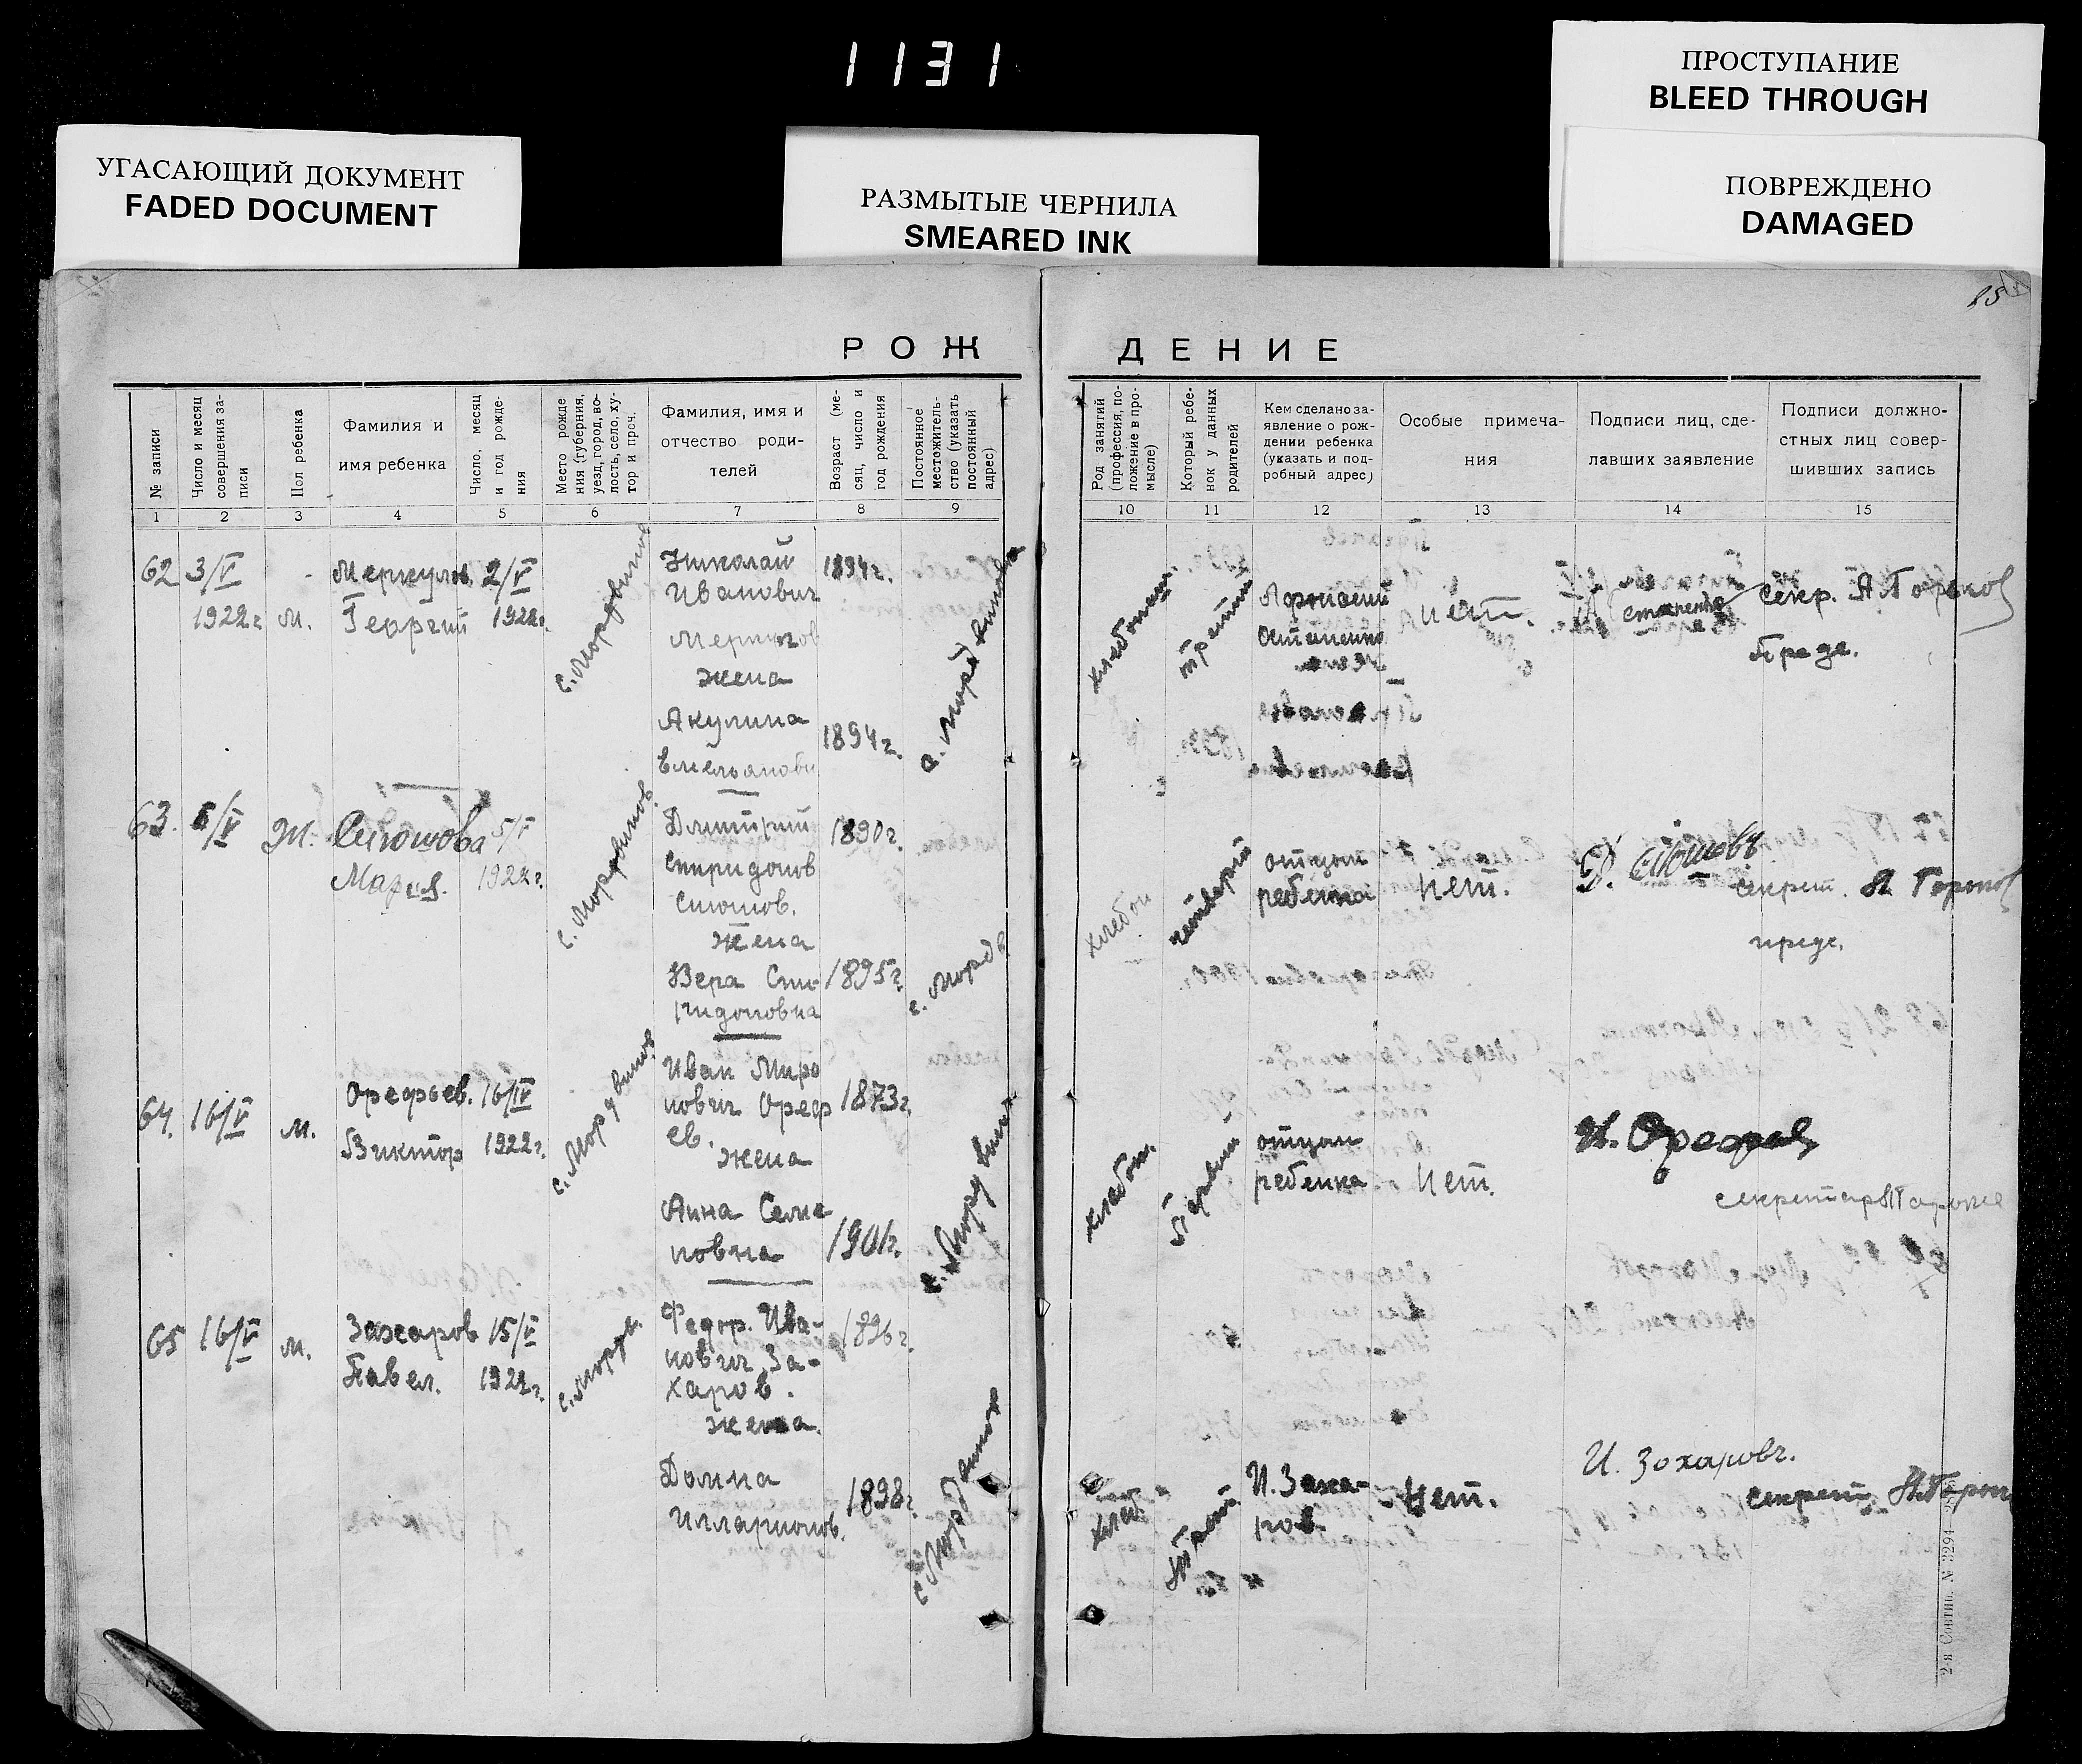 1131
ПРОСТУПАНИЕ
BLEED THROUGH
УГАСАЮЩИЙ ДОКУМЕНТ
FADED DOCUMENT
РАЗМЫТЫЕ ЧЕРНИЛА
SMEARED INK
ПОВРЕЖДЕНО
DAMAGED
РОЖДЕНИЕ
№ записи
Число и месяц
совершения за-
писи
Пол ребенка
Фамилия и
имя ребенка
Число, месяц
и год рожде-
ния
Место рожде
ния (губерния,
уезд, город, во-
лость, село, ху-
тор и проч.
Фамилия, имя и
отчество роди-
телей
Возраст (ме-
сяц, число и
год рождения
Постоянное
местожитель-
ство (указать
постоянный
адрес)
Род занятий
(профессия, по-
ложение в про-
мысле)
Который ребе-
нок у данных
родителей
Кем сделано за-
явление о рож-
дении ребенка
(указать и под-
робный адрес)
Особые примеча-
ния
Подписи лиц, сде-
лавших заявление
Подписи должно-
стных лиц совер-
шивших запись
1 2 3 4 5 6 7 8 9 10 11 12 13 14 15
62 3/V
1922г.
м.
Меркулов
Георгий
2/V
1922г.
с. Мордвинов
Николай
Иванович
Меркулов
жена
Акулина
1894г.
1894г.
с. Мордвинов
хлебопаш.
третий
нет.
секр.
Предс.
63. 6/V
Ж.
Сиюшова
Мария.
5/V
1922г.
с. Мордвинов.
Дмитрий
Спиридонов
Сиюшов.
жена
Вера Спи-
ридоновна
1890г.
1895г.
с. Мордв
хлебоп
четверый
отцом
ребенка
нет.
Д. Сиюшовъ
секрет.
предс.
64. 16/V
м.
Орефьев.
Виктор
16/IV
1922г.
с. Мордвинов
Иван Миро
нович Ореф
ев.
жена
Анна Семе
новна
1873г.
1901г.
с. Мордвинов
хлебоп.
Первый
отцом
ребенка
нет.
И. Орефьевъ
секретарь
65 16/V
м.
Захаров
Павел.
15/V
1922г.
с. Мордв.
Федор. Ива-
нович За-
харов.
жена.
Домна
Илларионов.
1896г.
1898г.
с. Мордвинов
хлеб.
третий
И. Заха-
ров.
Нет.
И. Захаровъ.
секрет.